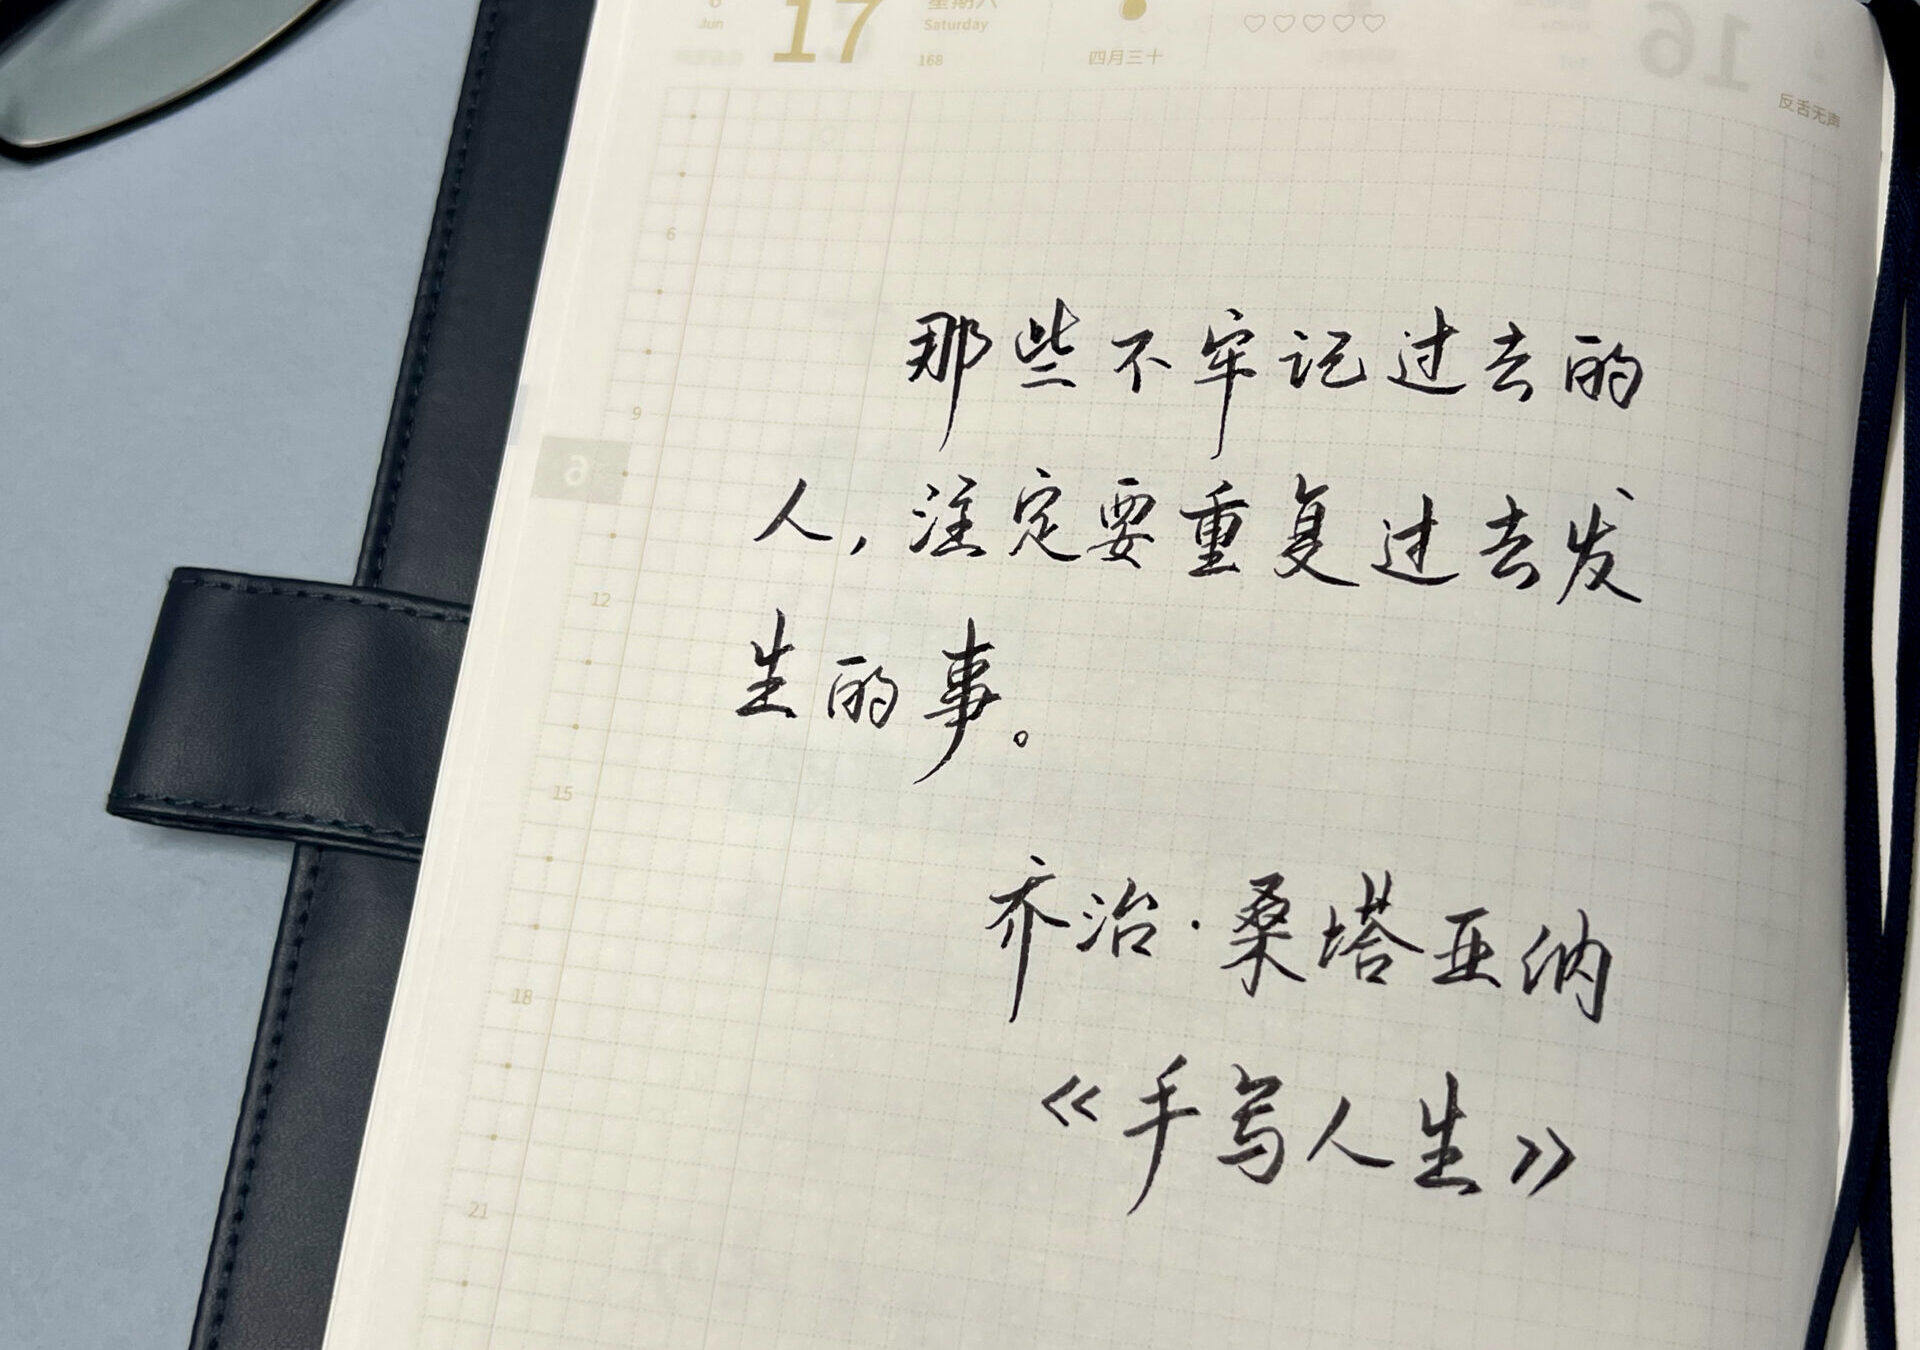 6 17 星期六
Jun Saturday
168 四月三十
16
反舌无声
6
那些不牢记过去的
9
6
人，注定要重复过去发
12
生的事。
15
乔治·桑塔亚纳
18
《手写人生》
21